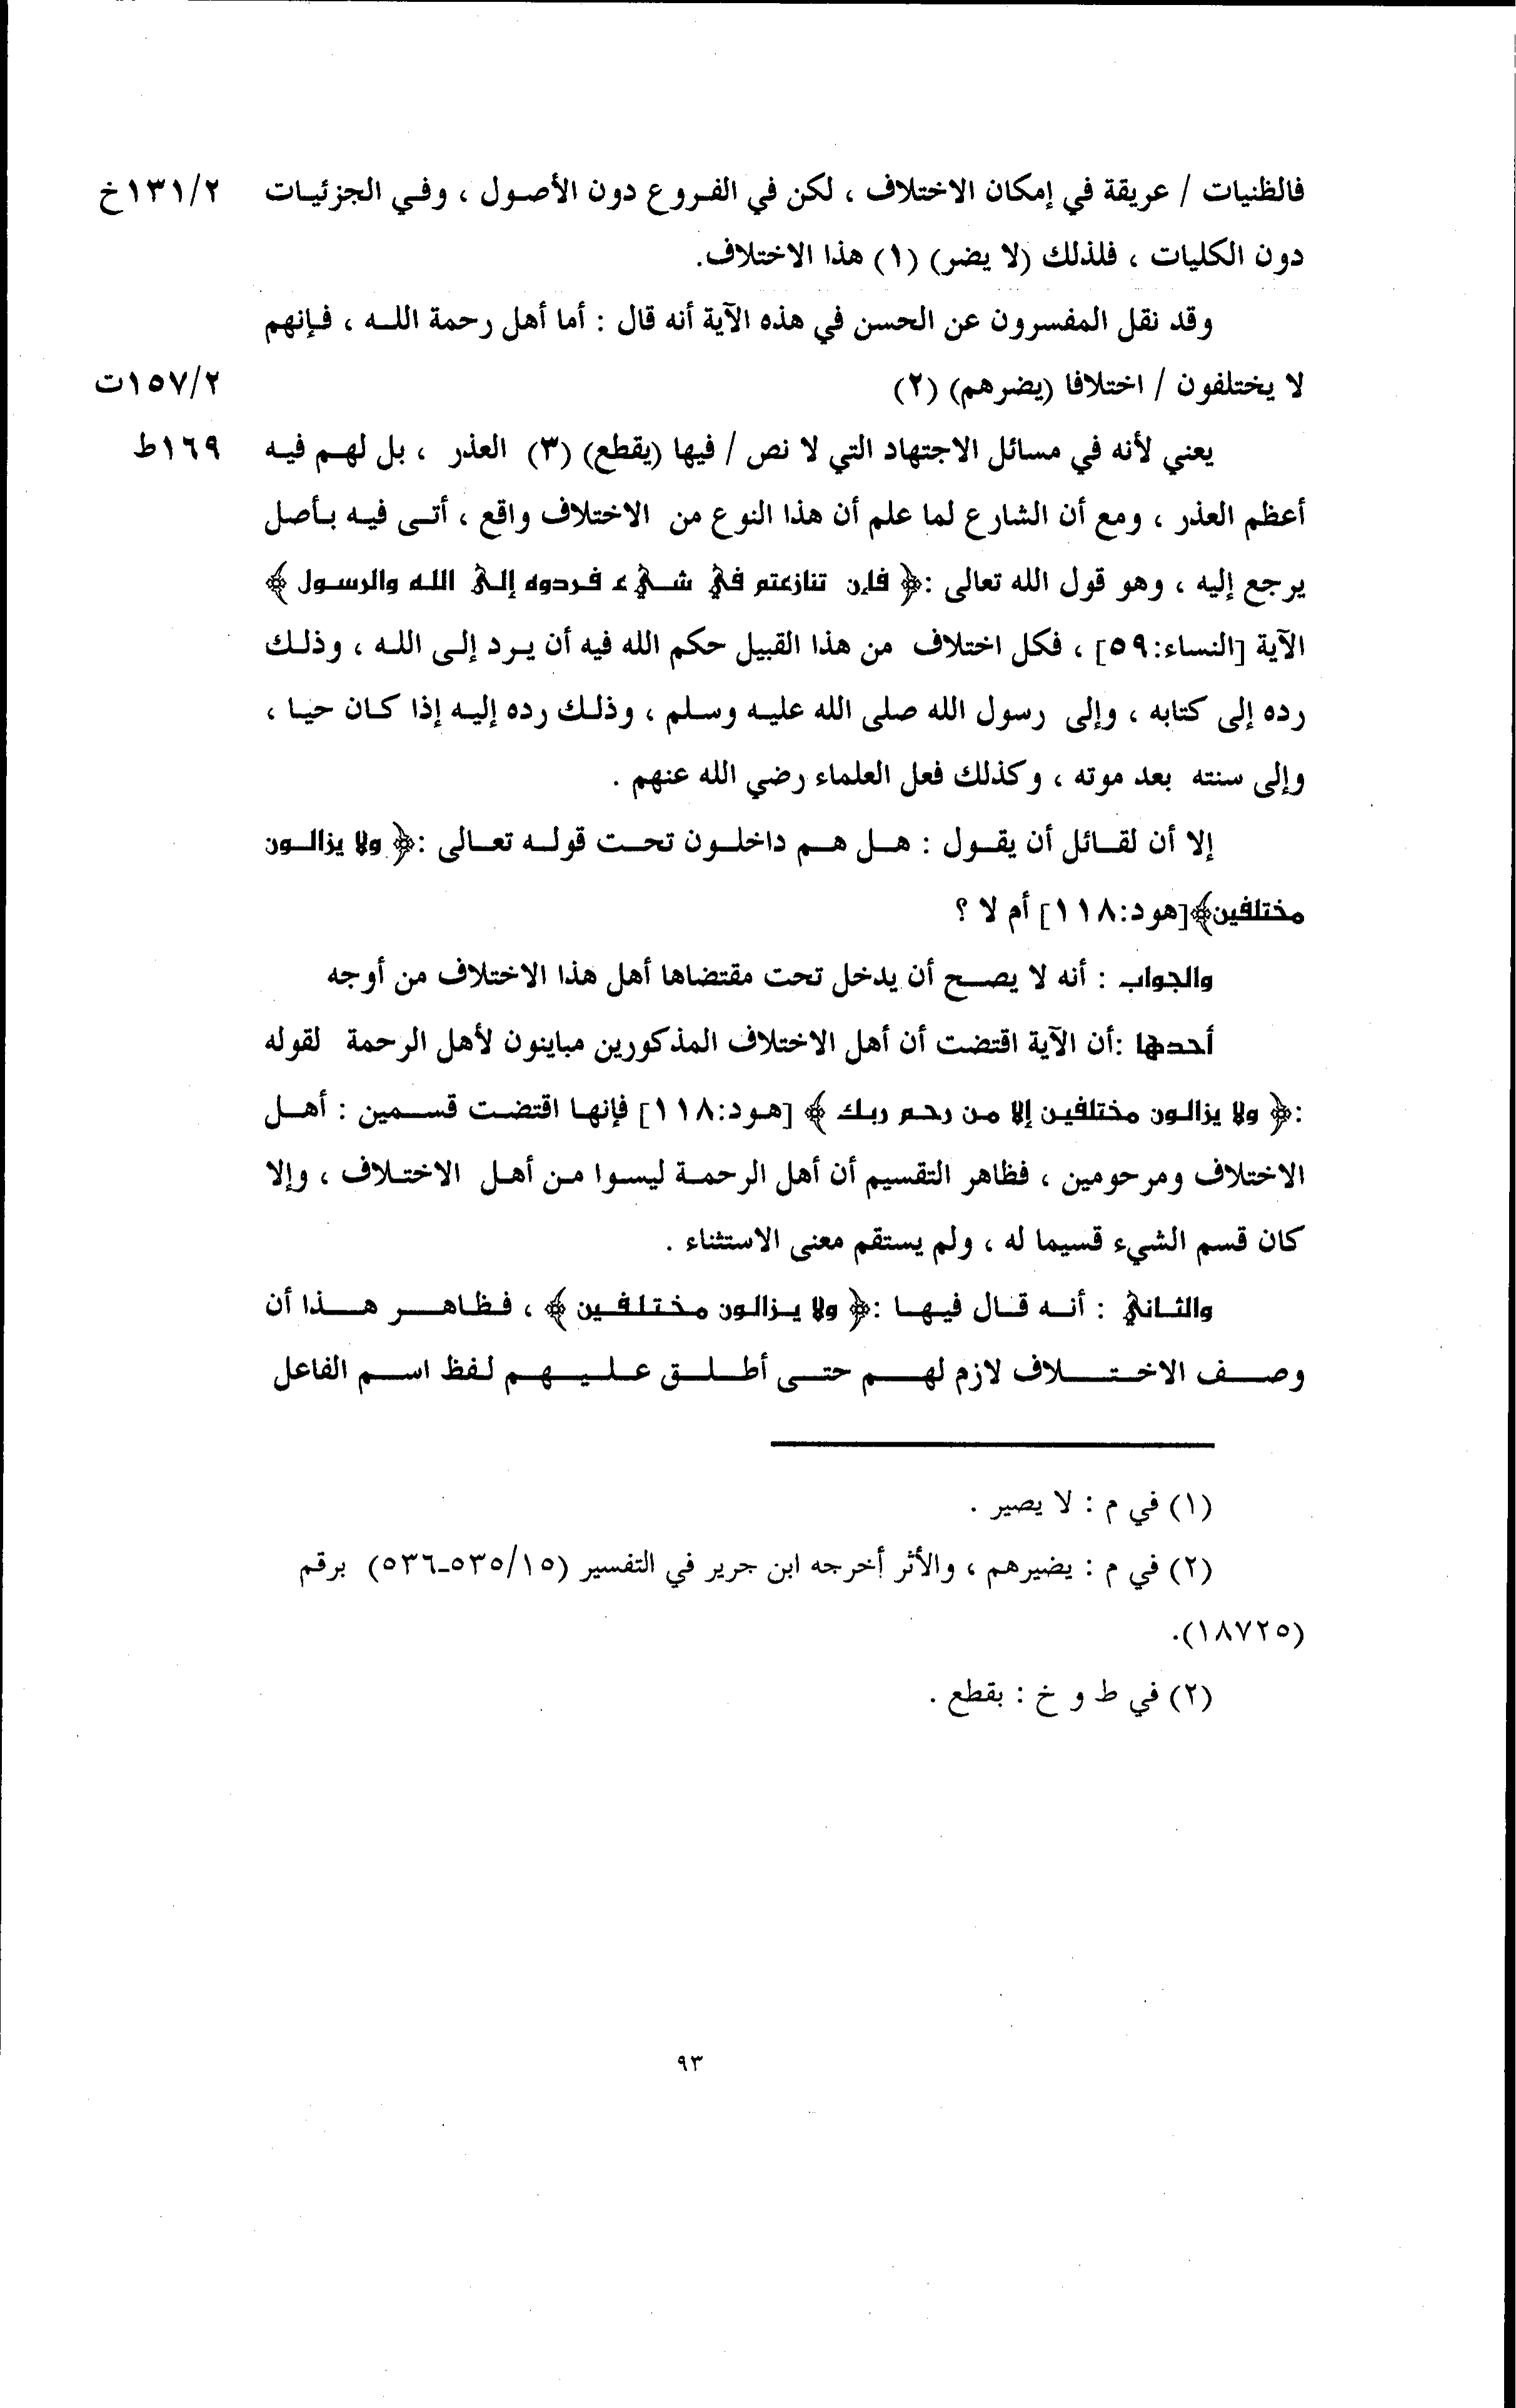 فالظنيات / عريقة في إمكان الاختلاف ، لكن في الفروع دون الأصول ، وفي الجزئيات ١٣١/٢خ
دون الكليات ، فلذلك (لا يضر) (١) هذا الاختلاف.
وقد نقل المفسرون عن الحسن في هذه الآية أنه قال : أما أهل رحمة الله ، فإنهم
لا يختلفون / اختلافا (يضرهم) (٢) ١٥٧/٢ت
يعني لأنه في مسائل الاجتهاد التي لا نص / فيها (يقطع) (٣) العذر ، بل لهم فيه ١٦٩ط
أعظم العذر ، ومع أن الشارع لما علم أن هذا النوع من الاختلاف واقع ، أتى فيه بأصل
يرجع إليه ، وهو قول الله تعالى :﴿ فإن تنازعتم في شيء فردوه إلى الله والرسول ﴾
الآية [النساء:٥٩] ، فكل اختلاف من هذا القبيل حكم الله فيه أن يرد إلى الله ، وذلك
رده إلى كتابه ، وإلى رسول الله صلى الله عليه وسلم ، وذلك رده إليه إذا كان حيا ،
وإلى سنته بعد موته ، وكذلك فعل العلماء رضي الله عنهم .
إلا أن لقائل أن يقول : هل هم داخلون تحت قوله تعالى :﴿ ولا يزالون
مختلفين﴾[هود:١١٨] أم لا ؟
والجواب : أنه لا يصح أن يدخل تحت مقتضاها أهل هذا الاختلاف من أوجه
أحدها :أن الآية اقتضت أن أهل الاختلاف المذكورين مباينون لأهل الرحمة لقوله
:﴿ ولا يزالون مختلفين إلا من رحم ربك ﴾ [هود:١١٨] فإنها اقتضت قسمين : أهل
الاختلاف ومرحومين ، فظاهر التقسيم أن أهل الرحمة ليسوا من أهل الاختلاف ، وإلا
كان قسم الشيء قسيما له ، ولم يستقم معنى الاستثناء .
والثاني : أنه قال فيها :﴿ ولا يزالون مختلفين ﴾ ، فظاهر هذا أن
وصف الاختلاف لازم لهم حتى أطلق عليهم لفظ اسم الفاعل
(١) في م : لا يصير .
(٢) في م : يضيرهم ، والأثر أخرجه ابن جرير في التفسير (٥٣٥/١٥-٥٣٦) برقم
(١٨٧٢٥).
(٢) في ط و خ : بقطع .
٩٣